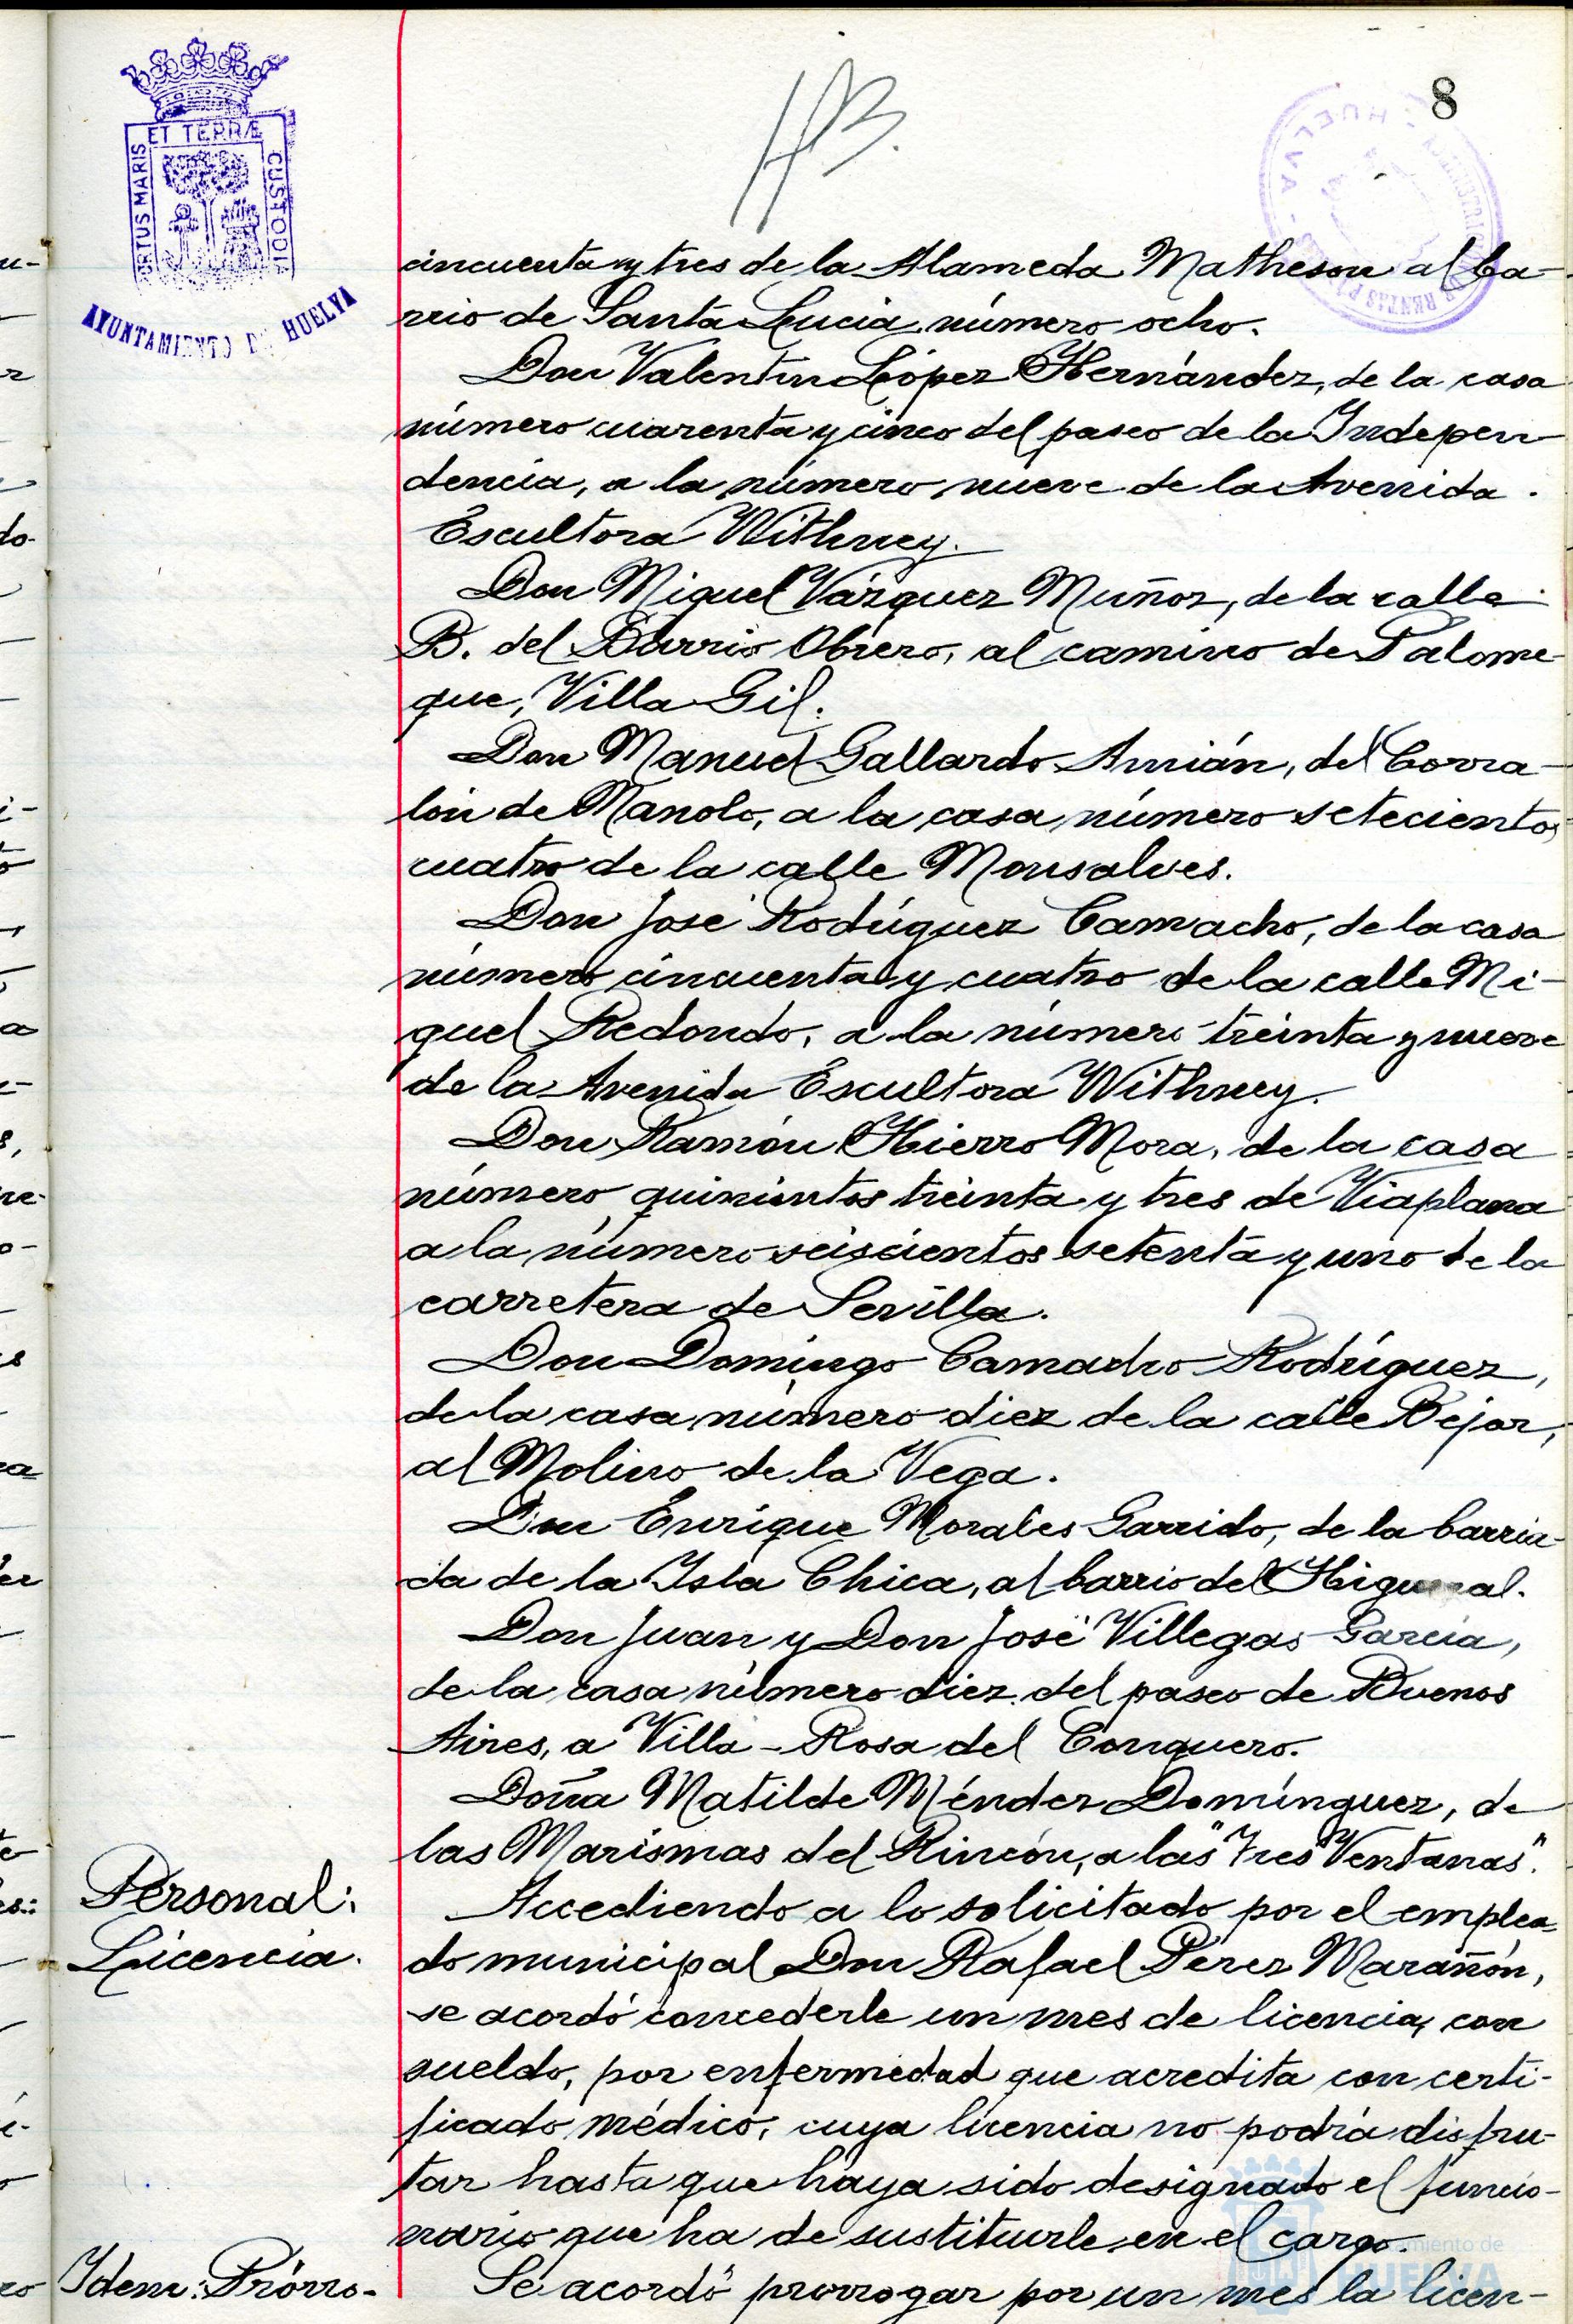 8
HB.
ET TERRÆ
PORTUS MARIS
CUSTODIA
AYUNTAMIENTO DE HUELVA
cincuenta y tres de la Alameda Matheson al ba-
rrio de Santa Lucía, número ocho.
Don Valentín López Hernández, de la casa
número cuarenta y cinco del paseo de la Indepen-
dencia, a la número nueve de la Avenida
Escultora Withney.
Don Miguel Vázquez Muñoz, de la calle
B. del Barrio Obrero, al camino de Palome-
que, Villa Gil.
Don Manuel Gallardo Amián, del Corra-
lón de Manolo, a la casa número setecientos
cuatro de la calle Monsalves.
Don José Rodríguez Camacho, de la casa
número cincuenta y cuatro de la calle Mi-
guel Redondo, a la número treinta y nueve
de la Avenida Escultora Withney.
Don Ramón Hierro Mora, de la casa
número quinientos treinta y tres de Viaplana
a la número seiscientos setenta y uno de la
carretera de Sevilla.
Don Domingo Camacho Rodríguez,
de la casa número diez de la calle Bejar,
al Molino de la Vega.
Don Enrique Morales Garrido, de la barria-
da de la Isla Chica, al barrio del Higueral.
Don Juan y Don José Villegas García,
de la casa número diez del paseo de Buenos
Aires, a Villa-Rosa del Conquero.
Doña Matilde Méndez Domínguez, de
las Marismas del Rincón, a las "Tres Ventanas".
Personal:
Licencia.
Accediendo a lo solicitado por el emplea-
do municipal Don Rafael Pérez Marañón,
se acordó concederle un mes de licencia, con
sueldo, por enfermedad que acredita con certi-
ficado médico, cuya licencia no podrá disfru-
tar hasta que haya sido designado el funcio-
nario que ha de sustituirle en el cargo.
Idem: Prórro-
Se acordó prorrogar por un mes la licen-
Ayuntamiento de
HUELVA